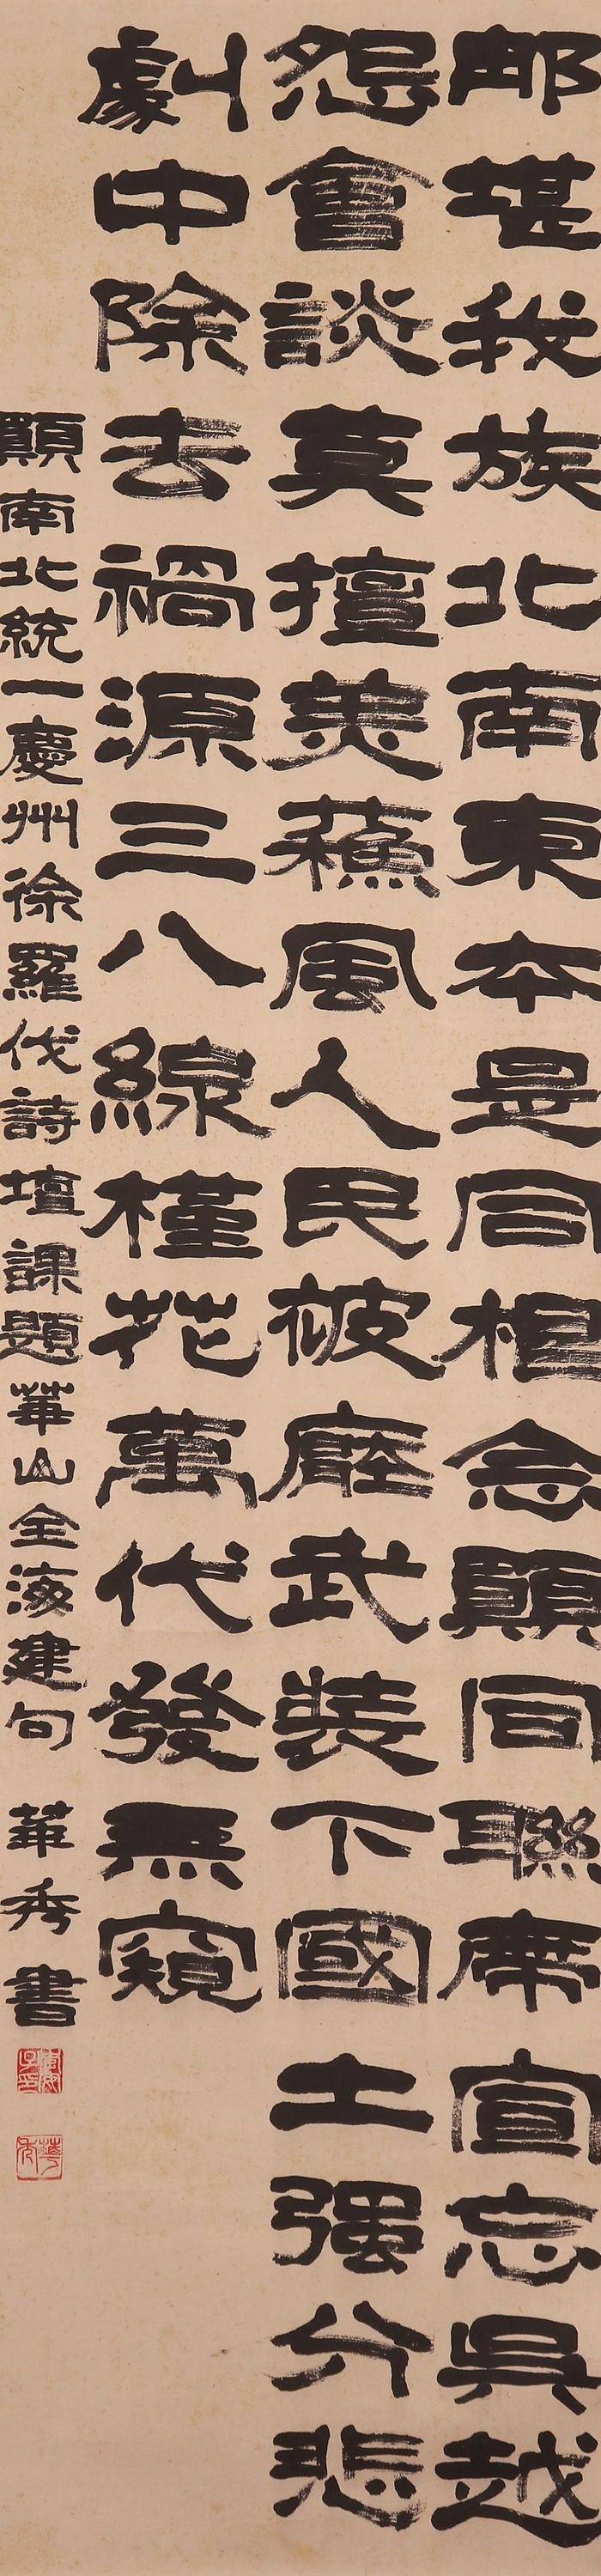 那堪我族北南東本是同相念願同聯席宜忘吳越
怨會談莫擅美蘓風人民被壓武裝下國土强分悲
劇中除去禍源三八線槿花萬代發無窮
願南北統一慶州徐羅伐詩壇課題華山全海建句 華秀書